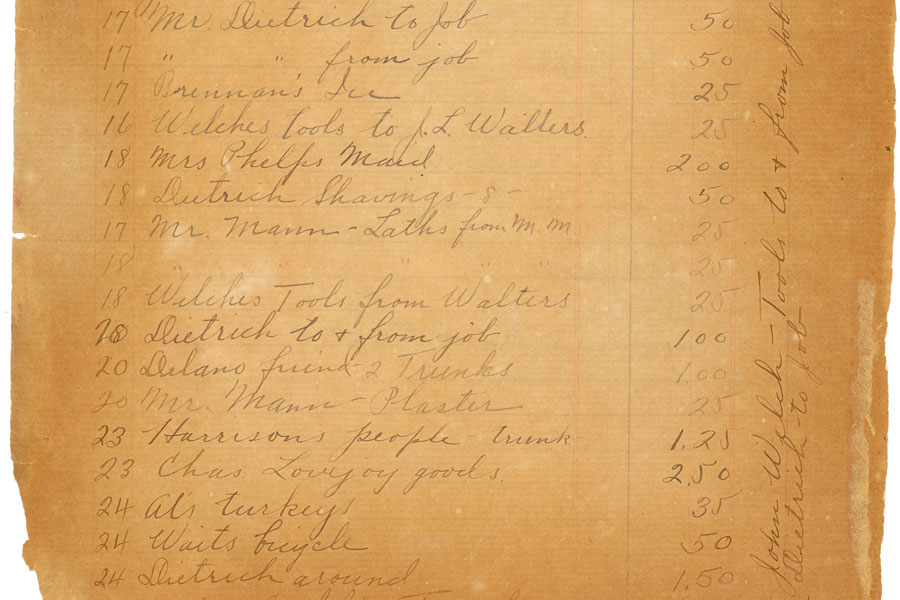 17 Mr. Dietrich to Job 50
17 " " from job .50
17 Brennan's Ice 25
16 Welches tools to J. L. Walters. 25
18 Mrs Phelps Maid 200
18 Dietrich Shavings - 8 - 50
17 Mr. Mann - Laths from M. M. 25
18 " " " " 25
18 Welches Tools from Walters 25
20 Dietrich to & from job 100
20 Delano friend - 2 Trunks 1.00
20 Mr. Mann - Plaster 25
23 Harrison's people trunk 1.25
23 Chas. Lovejoy goods. 2.50
24 Als turkeys 35
24 Waits bicycle 50
24 Dietrich around 1.50
John Welch - Tools to & from job
Dietrich - to job